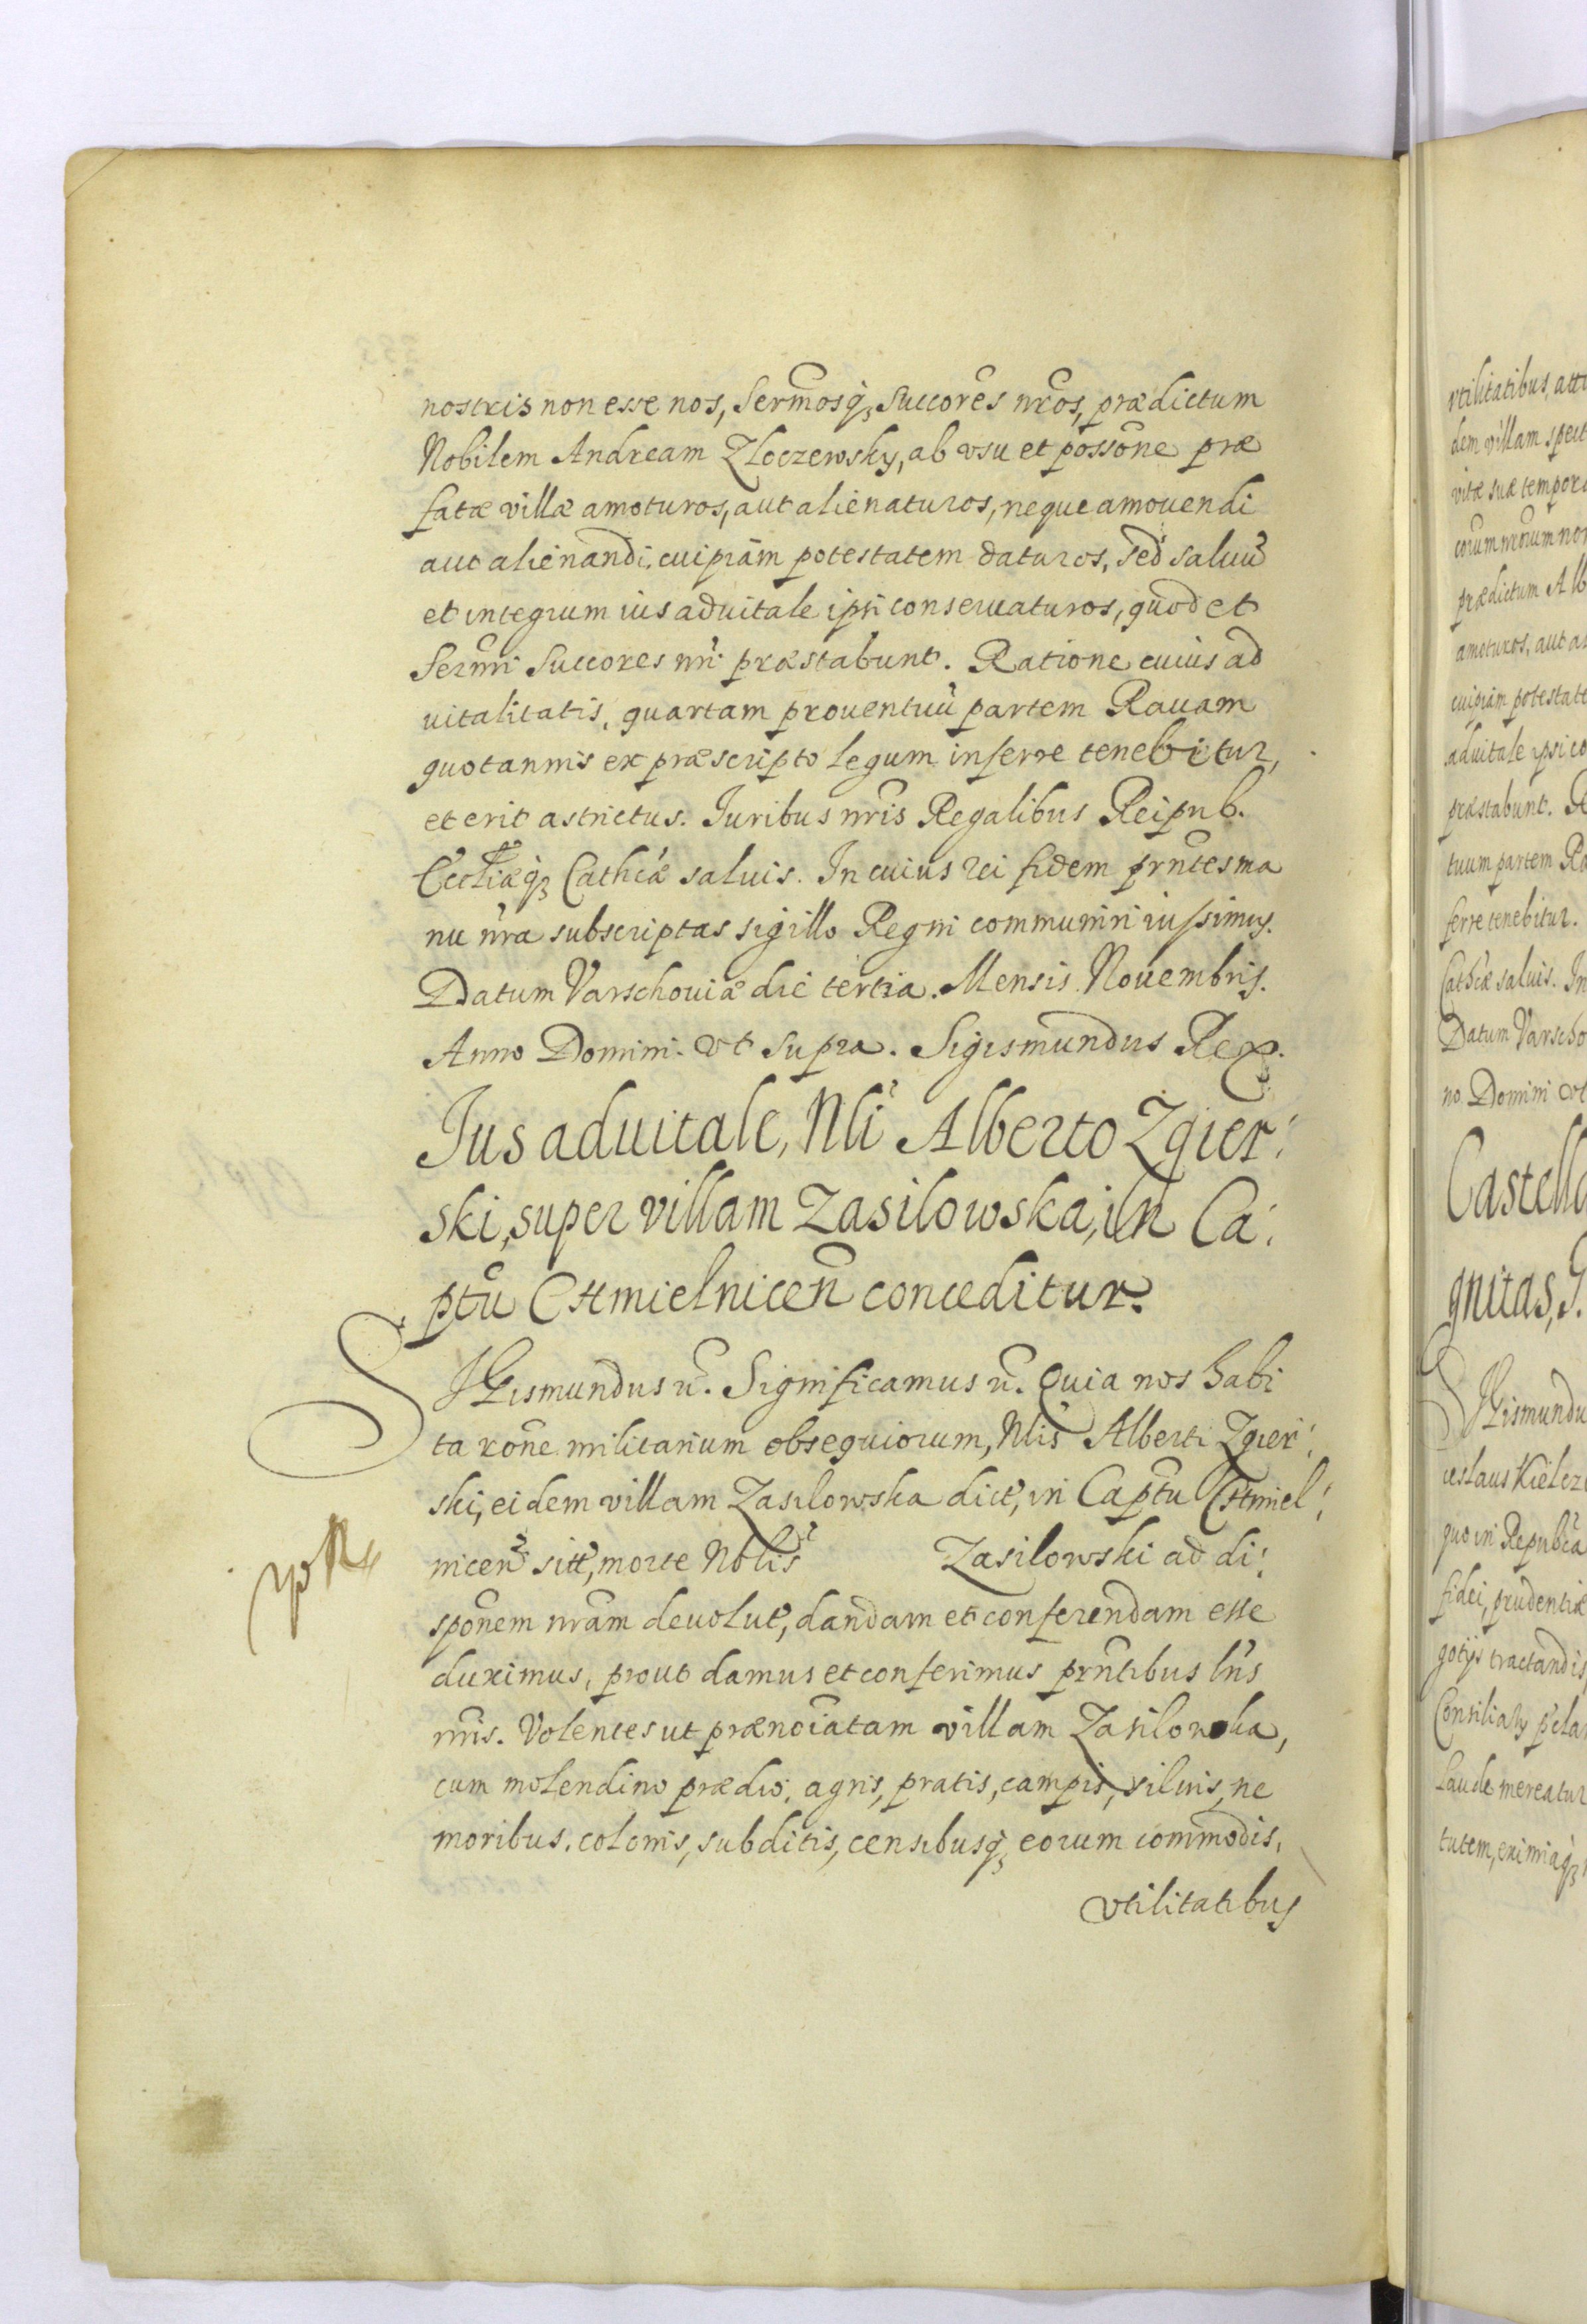 nostris non esse nos, Sermosq3 Succores nros, prædictum
Nobilem Andream Zloczewsky, ab vsu et possone præ
fatæ villæ amoturos, aut alienaturos, neque amouendi
aut alienandi cuipiam potestatem daturos, sed saluũ
et integrum ius aduitale ipsi conseruaturos, quod et
Sermi Succores nri præstabunt. Ratione cuius ad
uitalitatis, quartam prouentuũ partem Rauam
quotannis ex præscripto legum inferre tenebitur,
et erit astrictus. Iuribus nris Regalibus Reipub.
Eccliæq3 Cathcæ saluis. In cuius rei fidem prntes ma
nu nra subscriptas sigillo Regni communiri iussimus.
Datum Varschouiæ die tertia. Mensis Nouembris.
Anno Domini vt supra. Sigismundus Rex.
Ius aduitale, Nli Alberto Zgier:
ski, super villam Zasilowska, in Ca:
ptu Chmielnicen conceditur.
SIGismundus rc. Significamus rc. Quia nos habi
ta rone militarium obsequiorum, Nlis Alberti Zgier:
ski, eidem villam Zasilowska dict, in Captu Chmiel:
nicen sitt, morte Noblis Zasilowski ad di:
sponem nram deuolut, dandam et conferendam esse
duximus, prout damus et conferimus prntibus lris
nris. Volentes ut prænoiatam villam Zasilowska,
cum molendino prædio, agris, pratis, campis, siluis, ne
moribus, colonis, subditis, censibusq3 eorum commodis,
vtilitatibus
vtilitatibus, att
dem villam spect
vitæ suæ tempora
corum nrorum non
prædictum Alb
amoturos, aut a
cuipiam potestate
aduitale ipsi co
præstabunt. R
tuum partem Ra
ferre tenebitur.
Cathcæ saluis. In
Datum Varscho
no Domini vt
Castella
gnitas, S.
SIGismundu
ceslaus Kielcz
quo in Republca
fidei, prudentiæ
gotijs tractandis
laude mereatur
tutem, eximiaq3